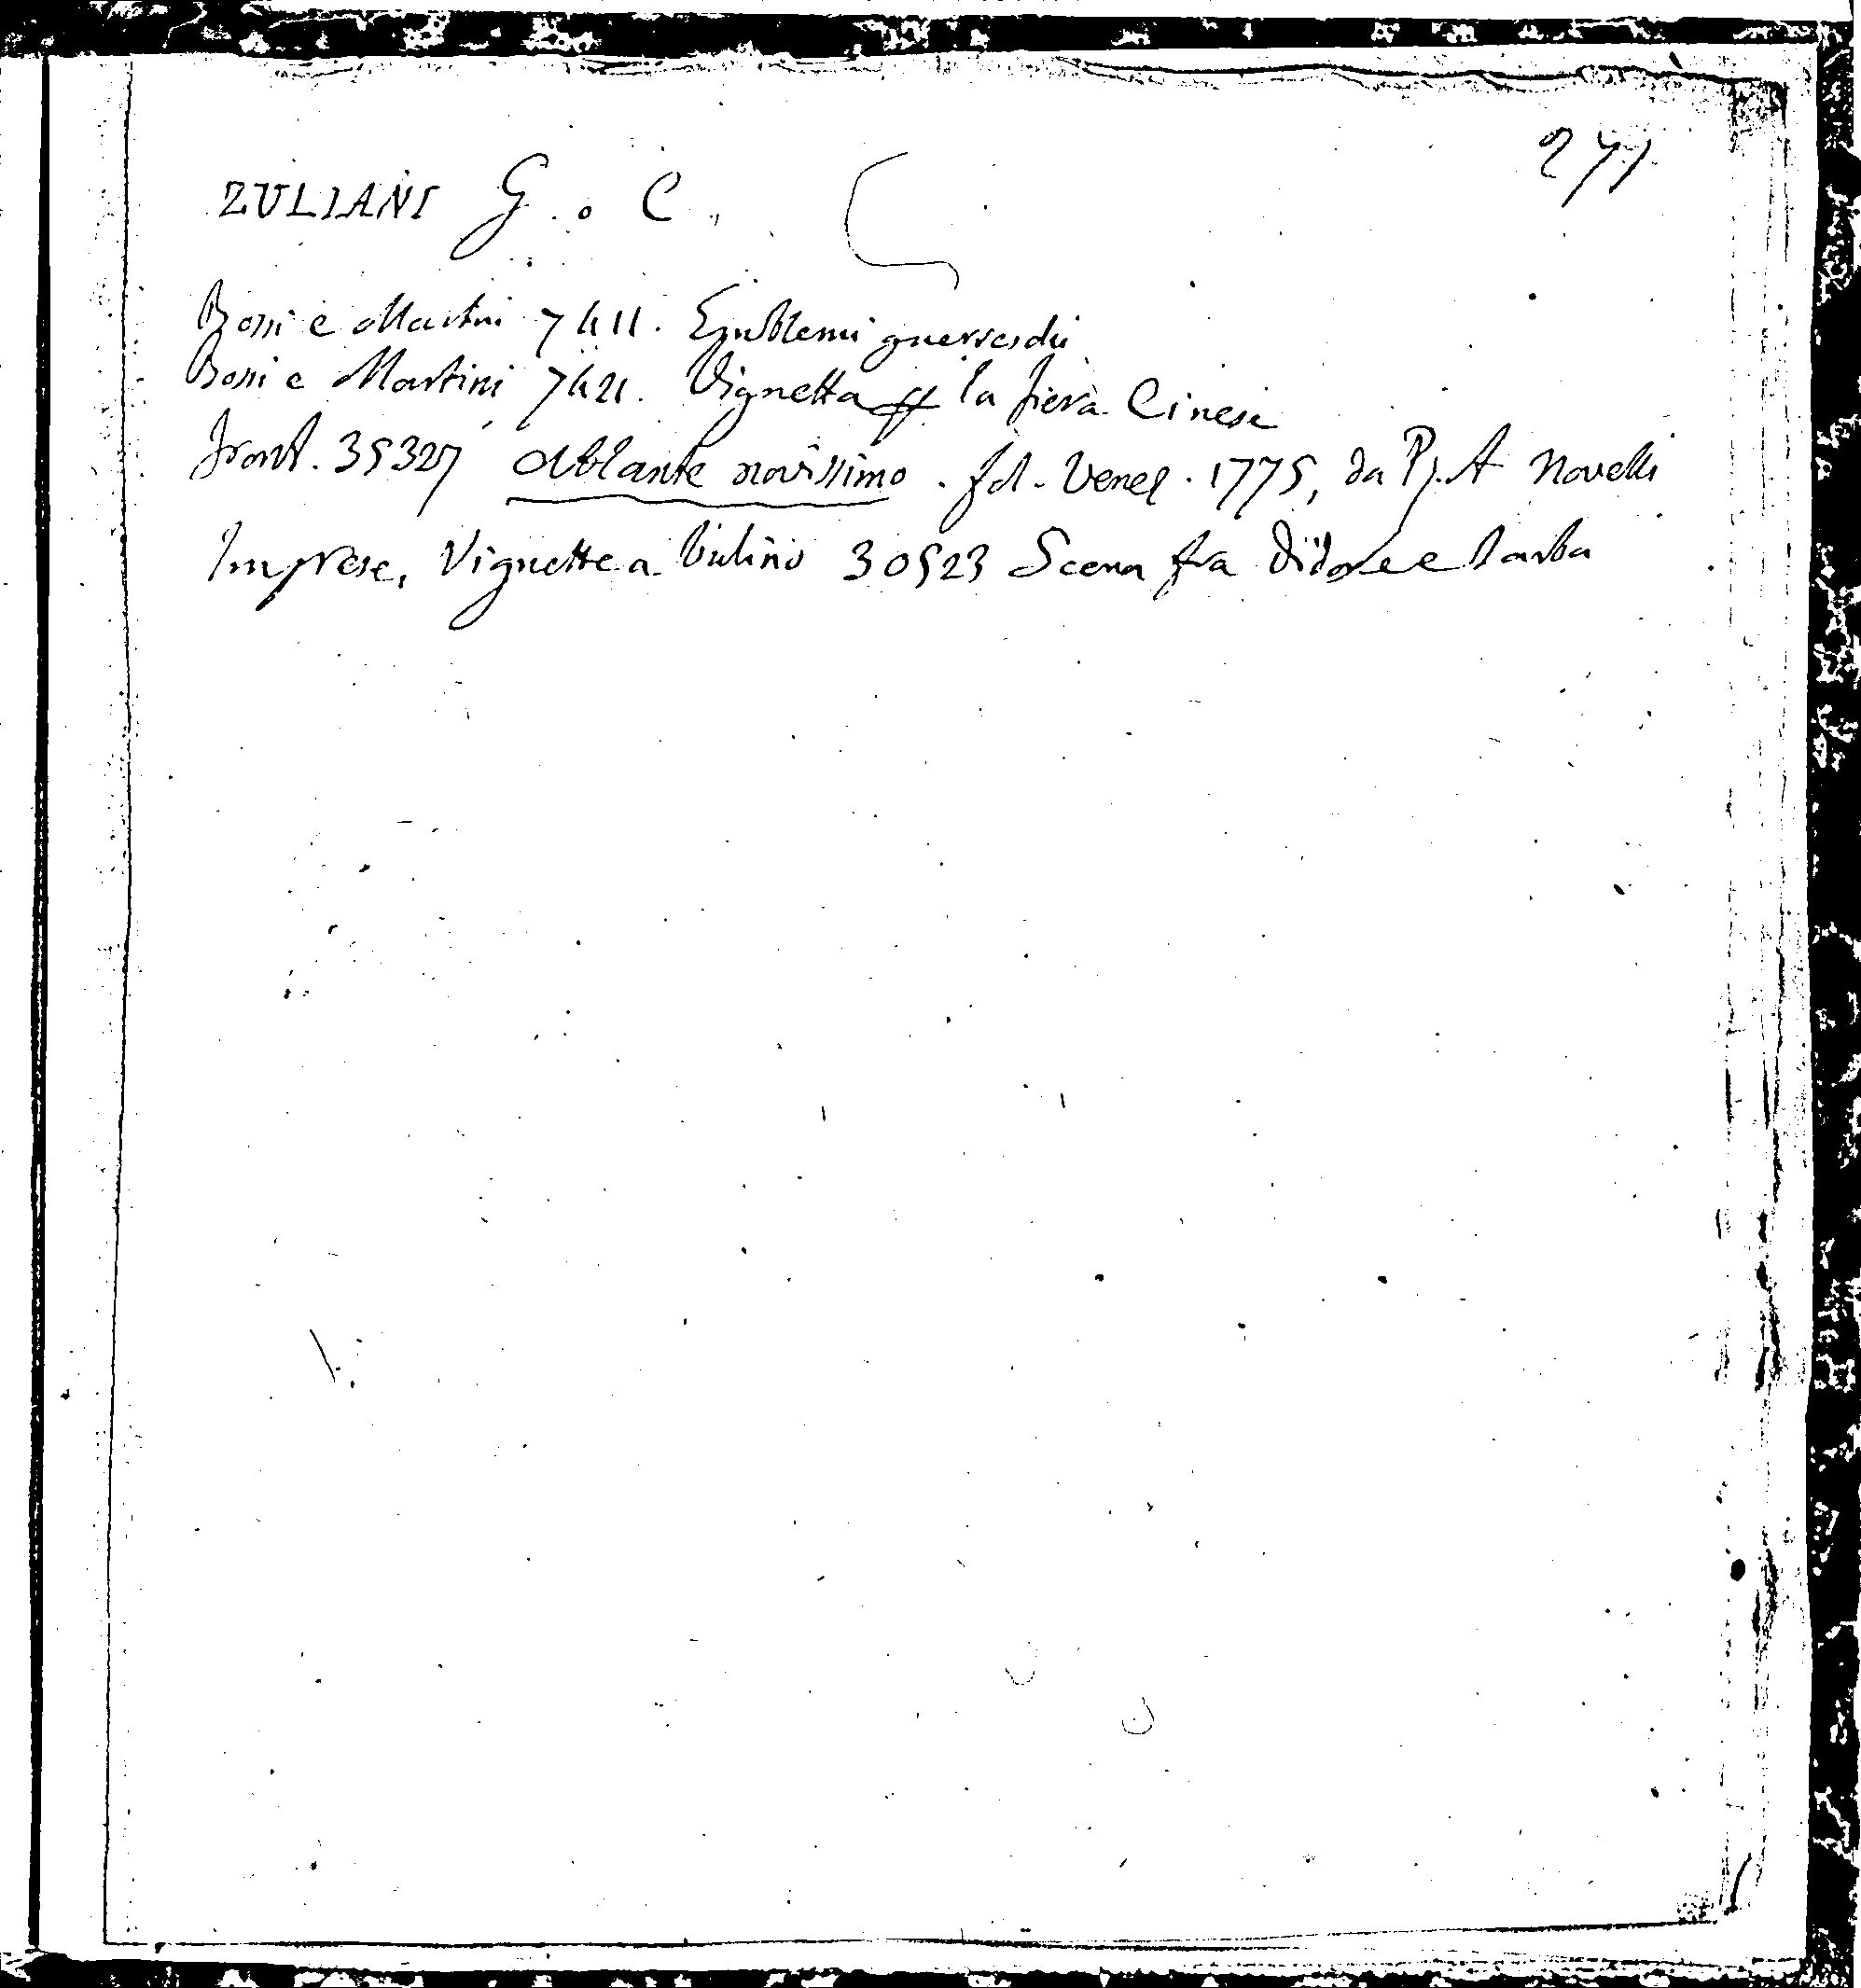 277
ZULIANI G. C.
Bossi e Martini 7411. Emblemi guerreschi
Bossi e Martini 7421. Vignetta la fiera Cinese
front. 35327 Atlante novissimo. fol. Venez. 1775, da P. A Novelli
Imprese, Vignette a bulino 30523 Scena fra Didone e Iarba